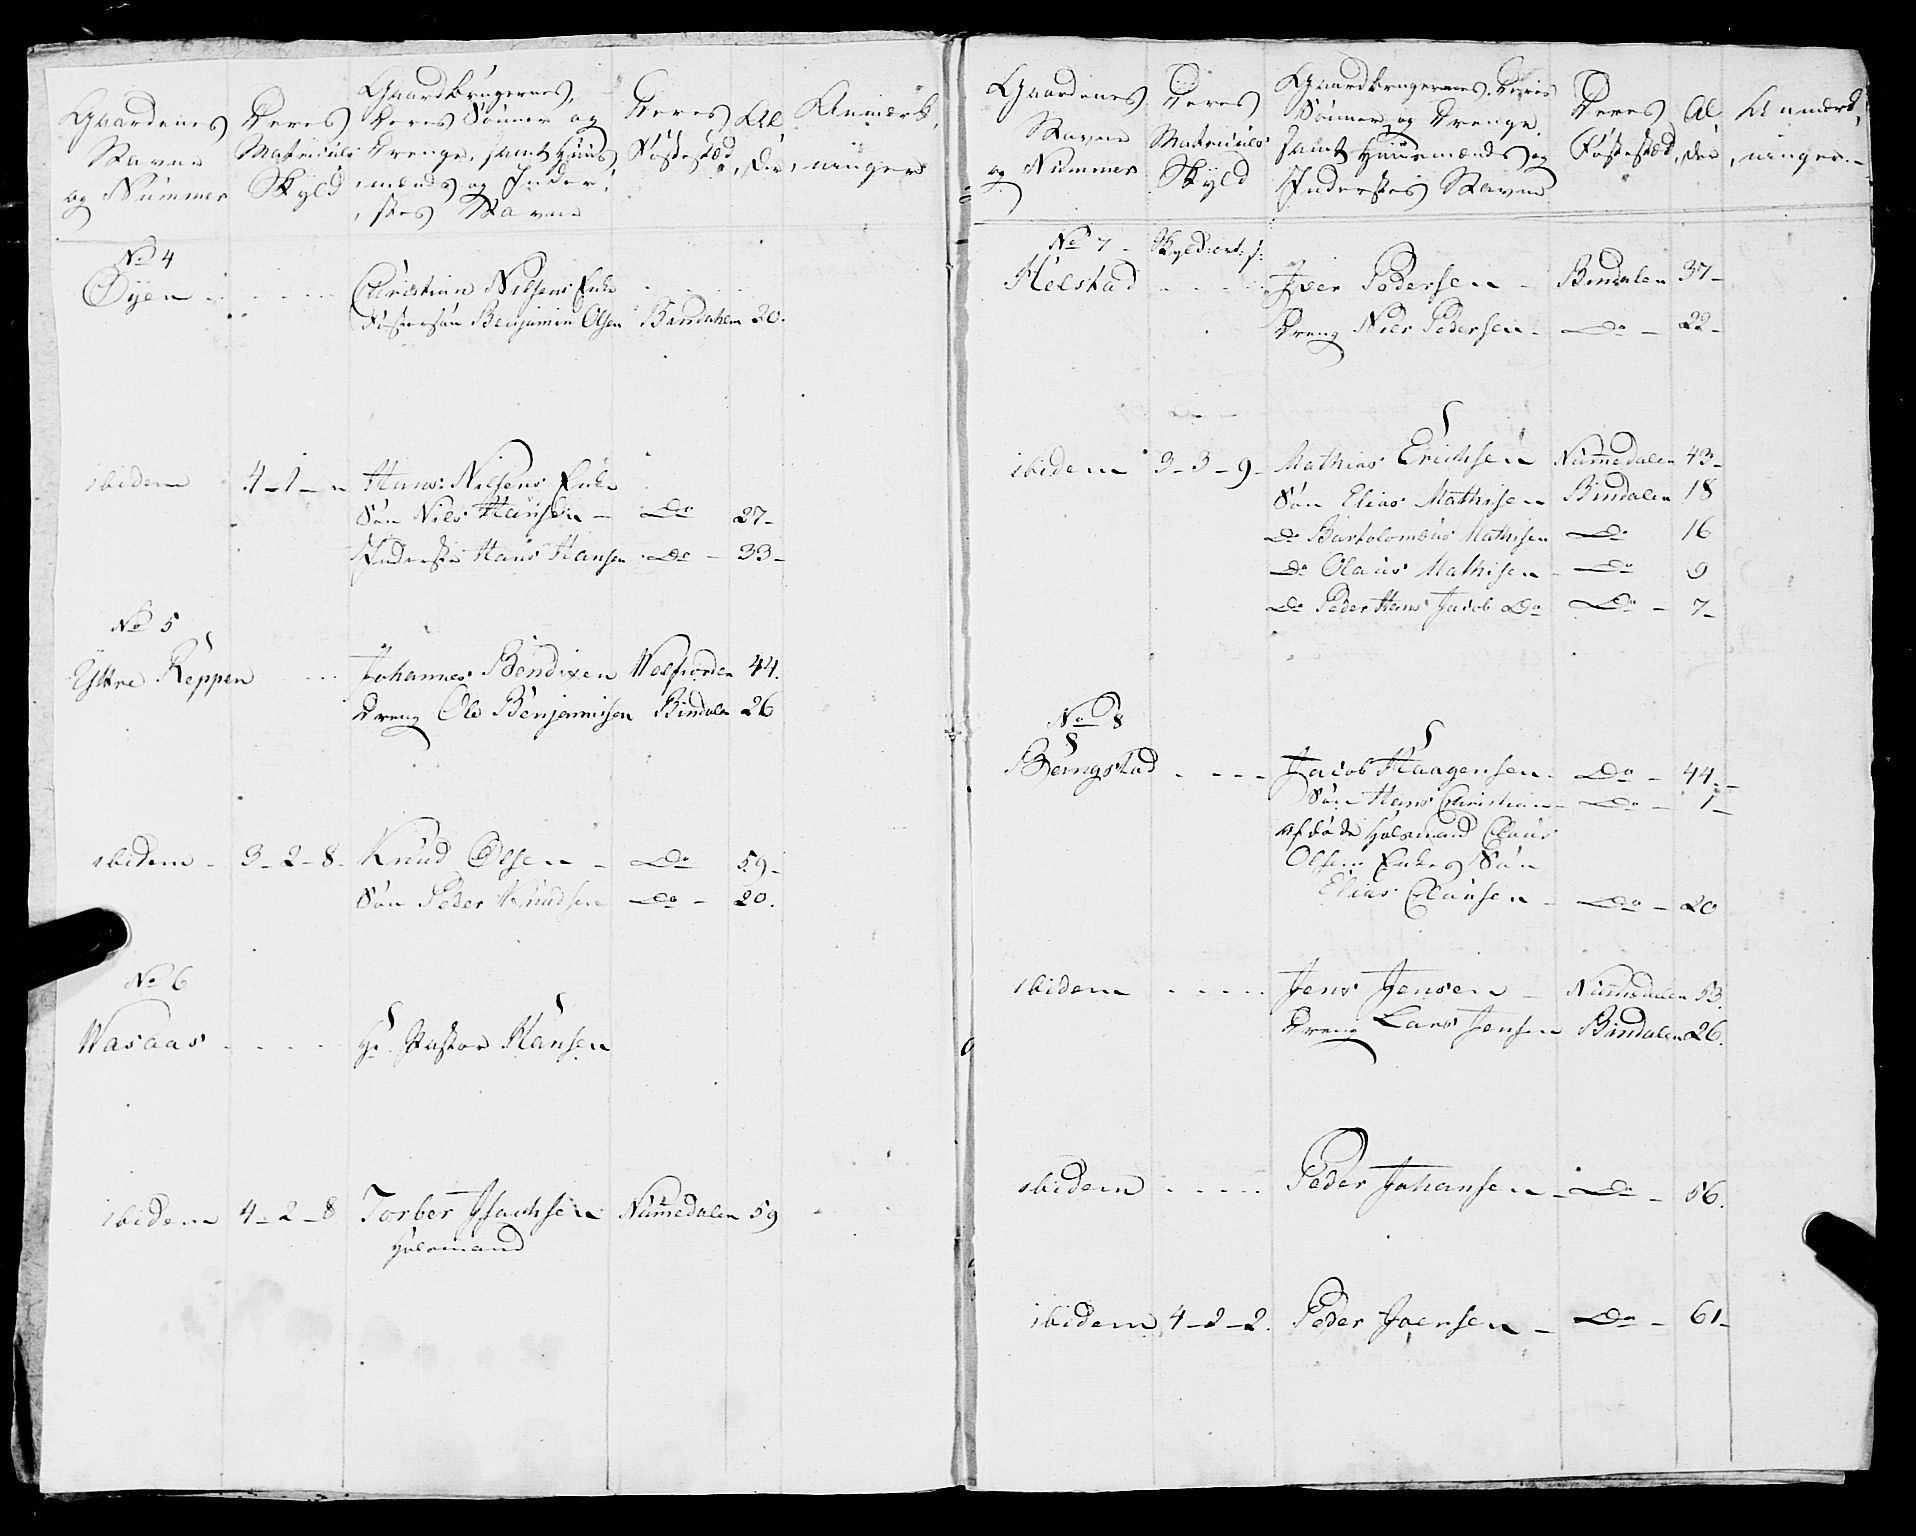 Gaardenes
Navne
og Nummer
Deres
Matriculs
Skyld
Gaardbrugernes,
Deres Sønner og
Drenge, samt Huus
mænds og Inder,
,stes Navne
Deres
Føstestæd
Al
,der,
Anmærk,
,ninger
No 4
Øyen - - - - - Christian Nilsens Enke - - - -
Fostersøn Benjamin Olsen Bindalen 20.
ibidem 4-1-" Hans Nilsens Enke
Søn Nils Hansen - Do 27-
Inderste Hans Hansen Do - 33-
No 5
Yttre Reppen - - - Johannes Bendixen Welfiorden 44.
Dreng Ole Benjaminsen Bindalen 26
ibidem - 3-2-8- Knud Olsen - Do 59-
Søn Peder Knudsen Do - 20.
No 6
Wasaas - - - - - Hr Pastor Hansen
ibidem 4-2-8 Torber Isachsen Nummedalen 59
Huusmand
Gaardenes
Navne
og Nummer
Deres
Matriculs
Skyld
Gaardbrugernes, Deres
Sønner og Drenge,
samt Huusmænds og
Inderstes Navne
Deres
Føstestæd
Al
,der
Anmærk,
,ninger-
No 7 - Skyld: ort: s:
Helstad - - - - - Iver Pedersen - Bindalen 37-
Dreng Niels Pedersen - Do - 22-
ibidem 3-3-9- Mathias Erichsen Nummedalen 43-
Søn Elias Mathisen Bindalen 18
Do Bartolomæus Mathisen Do 16
Do Olaus Mathisen - Do 9
Do Peder Hans Jacob Do Do - 7-
No 8
Bengstad - - - - Jacob Haagensen - Do - 44.-
Søn Hans Christian - Do - 1-
Afdøde Huusmand Claus
Olsens Enke og Søn
Elias Clausen - Do - 20
ibidem - - - - - Jens Jensen - Nummedalen 53.
Dreng Lars Jensen Bindalen 26.
ibidem - - - - - Peder Johansen - Do - 56.
ibidem 4-2-2. Peder Joensen - Do - 61-